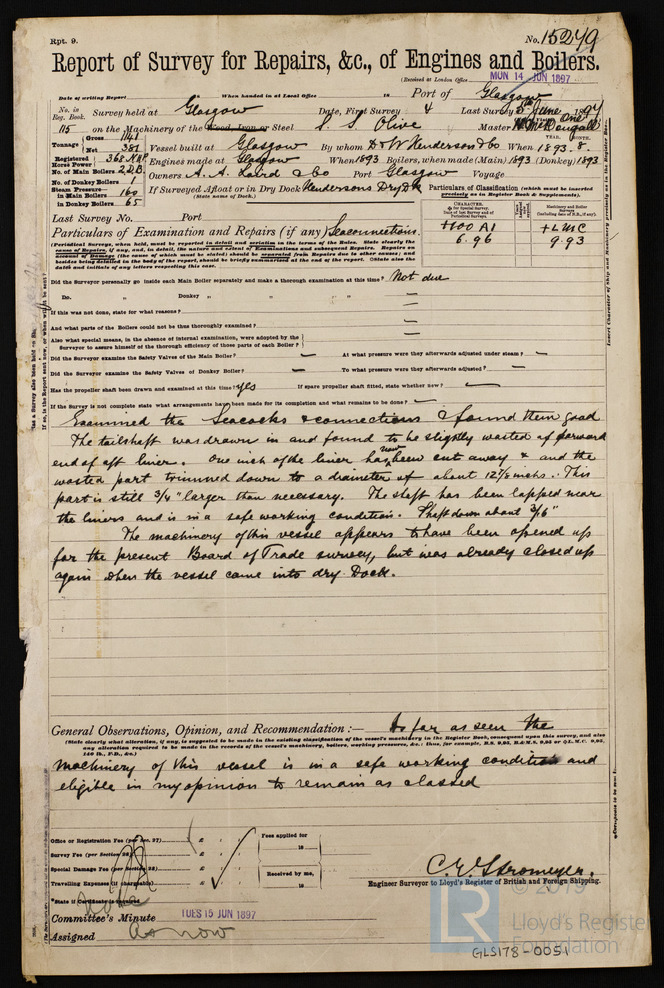 Rpt. 9.
No. 15279
Report of Survey for Repairs, &c., of Engines and Boilers.
(Received at London Office MON 14 JUN 1897
Date of writing Report When handed in at Local Office 18 Port of Glasgow
No. in Reg. Book. Survey held at Glasgow Date, First Survey 4 Last Survey 5th June 1897
115 on the Machinery of the Wood, Iron or Steel S. S. Olive Master
Tonnage Gross 1141 Net 381 Vessel built at Glasgow By whom D & W Henderson & Co When 1893. 8.
Registered Horse Power 368 NHP Engines made at Glasgow When 1893 Boilers, when made (Main) 1893 (Donkey) 1893
No. of Main Boilers 2 D.B. Owners A. A. Laird & Co Port Glasgow Voyage
No. of Donkey Boilers 1
Steam Pressure in Main Boilers 160 If Surveyed Afloat or in Dry Dock Hendersons Dry Dk
in Donkey Boilers 65 (State name of Dock.)
Particulars of Classification (which must be inserted precisely as in Register Book & Supplements).
Last Survey No. Port
+100 A1 +LMC
6.96 9.93
Particulars of Examination and Repairs (if any) Seaconnections.
(Periodical Surveys, when held, must be reported in detail and seriatim in terms of the Rules. State clearly the
cause of Repairs, if any, and, in detail, the nature and extent of Examinations and subsequent Repairs. Repairs on
account of Damage (the cause of which must be stated) should be separated from Repairs due to other causes; and
besides being detailed in the body of the report, should be briefly summarised at the end of the report. State also the
dates and initials of any letters respecting this case.
Did the Surveyor personally go inside each Main Boiler separately and make a thorough examination at this time? Not due
Do. " Donkey " " " " " —
If this was not done, state for what reasons? —
And what parts of the Boilers could not be thus thoroughly examined? —
Also what special means, in the absence of internal examination, were adopted by the
Surveyor to assure himself of the thorough efficiency of those parts of each Boiler? —
Did the Surveyor examine the Safety Valves of the Main Boiler? — At what pressure were they afterwards adjusted under steam? —
Did the Surveyor examine the Safety Valves of Donkey Boiler? — To what pressure were they afterwards adjusted? —
Has the propeller shaft been drawn and examined at this time? yes If spare propeller shaft fitted, state whether new? —
If the Survey is not complete state what arrangements have been made for its completion and what remains to be done? —
Examined the Seacocks & connections & found them good
The tailshaft was drawn in and found to be slightly wasted at forward
end of aft liner. One inch of the liner has now been cut away & and the
wasted part trimmed down to a diameter of about 12 1/8 inchs. This
part is still 3/4" larger than necessary. The shaft has been lapped near
the liners and is in a safe working condition. Shaft down about 3/16"
The machinery of this vessel appears to have been opened up
for the present Board of Trade survey, but was already closed up
again when the vessel came into dry Dock.
General Observations, Opinion, and Recommendation:— As far as seen the
(State clearly what alteration, if any, is suggested to be made in the existing classification of the vessel's machinery in the Register Book, consequent upon this survey, and also
any alteration required to be made in the records of the vessel's machinery, boilers, working pressures, &c.: thus, for example, B.S. 9,95, B.&M.S. 9,95 or L.M.C. 9,95,
140 lb., F.D., &c.)
machinery of this vessel is in a safe working condition and
eligible in my opinion to remain as classed
Office or Registration Fee (per Sec. 27) £ : : Fees applied for
Survey Fee (per Section 28) £ : : 18
Special Damage Fee (per Section 28) £ : : Received by me,
Travelling Expenses (if chargeable) £ : : 18
*State if Certificate is required
C. E. Stromeyer.
Engineer Surveyor to Lloyd's Register of British and Foreign Shipping.
Committee's Minute TUES 15 JUN 1897
Assigned As now
© 2019
LR
Lloyd's Register
Foundation
GLS178-0051